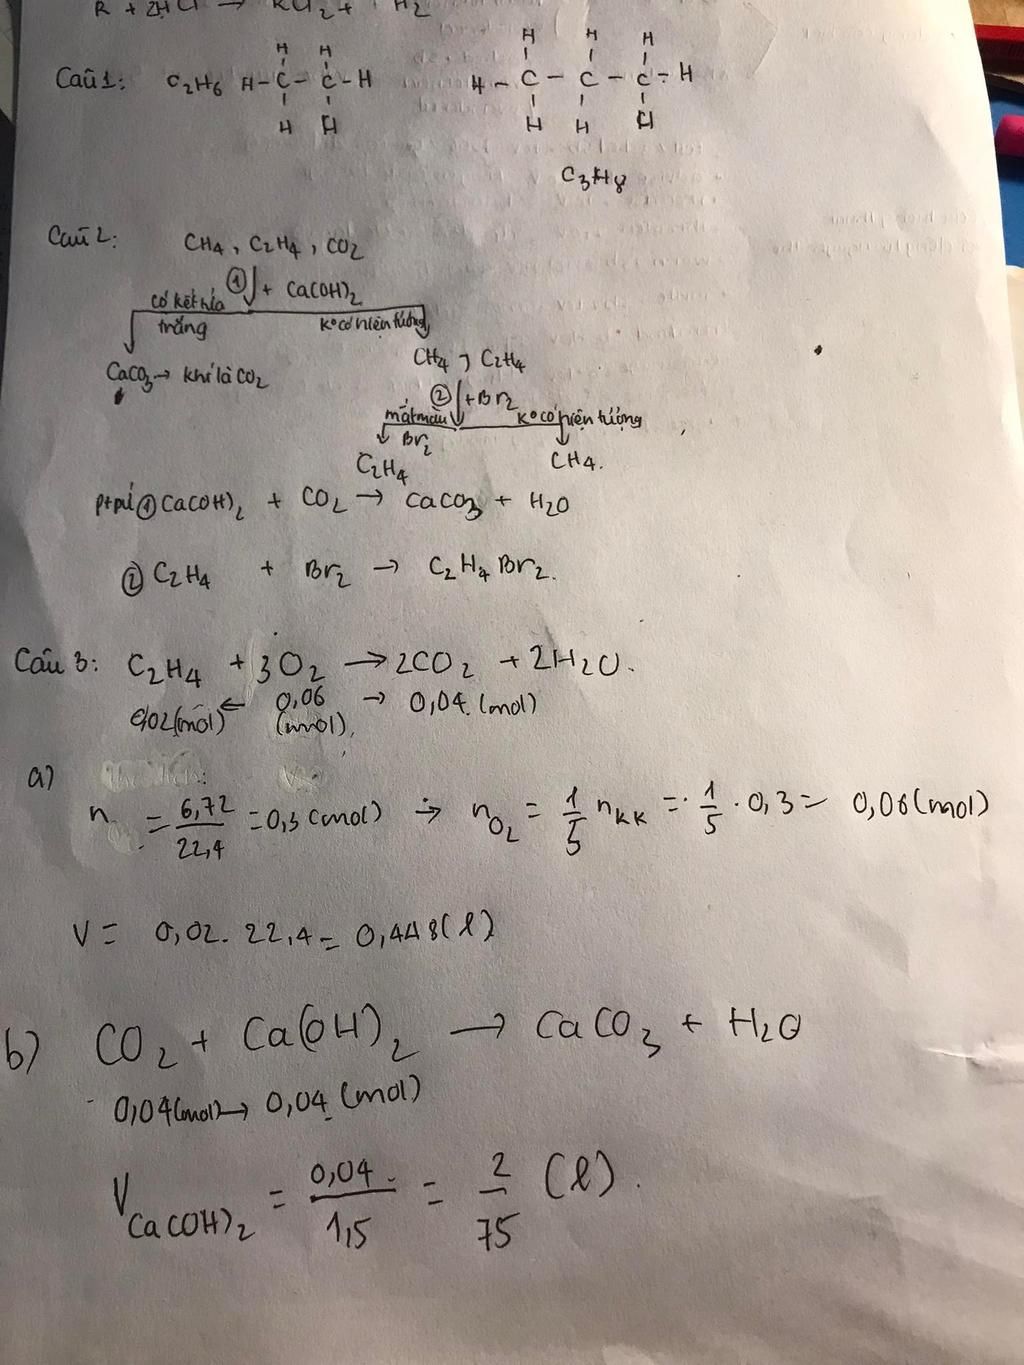 R + 2HCl → RCl2 + H2
H H H H H
Câu 1: C2H6 H-C-C-H H-C-C-C-H
H H H H H
C3H8
Câu 2: CH4, C2H4, CO2
① + Ca(OH)2
có kết tủa trắng ko có hiện tượng
CaCO3 → khí là CO2 CH4, C2H4
② + Br2
mất màu Br2 ko có hiện tượng
C2H4 CH4.
ptpứ ① Ca(OH)2 + CO2 → CaCO3 + H2O
② C2H4 + Br2 → C2H4Br2.
Câu 3: C2H4 + 3O2 → 2CO2 + 2H2O.
0,02(mol) ← 0,06 (mol) → 0,04 (mol)
a)
n = 6,72/22,4 = 0,3 (mol) → nO2 = 1/5 nKK = 1/5 . 0,3 = 0,06 (mol)
V = 0,02. 22,4 = 0,448(l)
b) CO2 + Ca(OH)2 → CaCO3 + H2O
0,04(mol) → 0,04 (mol)
VCa(OH)2 = 0,04/1,5 = 2/75 (l).